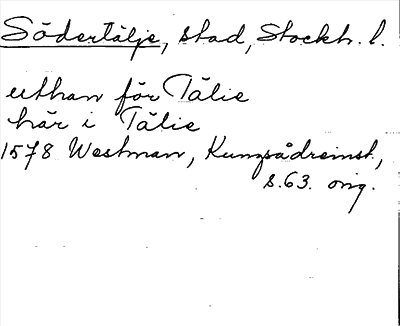 Södertälje, stad, Stockh. l.
uthan för Tälie
här i Tälie
1578 Westman, Kungsådreinst,
s.63. orig.